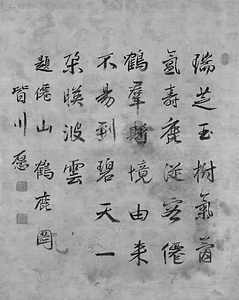 瑞芝玉樹氣氤
氳壽鹿從容僊
鶴羣斯境由來
不易到碧天一
朶映波雲
題僊山鶴鹿圖
皆川愿